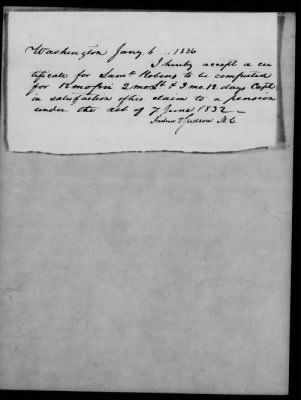 Washington Jany 6 1836
I hereby accept a cer
tificate for Saml Robens to be computed
for 12 mo pri 2 mo St & 3 mo 18 days Capt
in satisfaction of his claim to a pension
under the act of 7 June 1832 —
Andrew T Judson M.C.